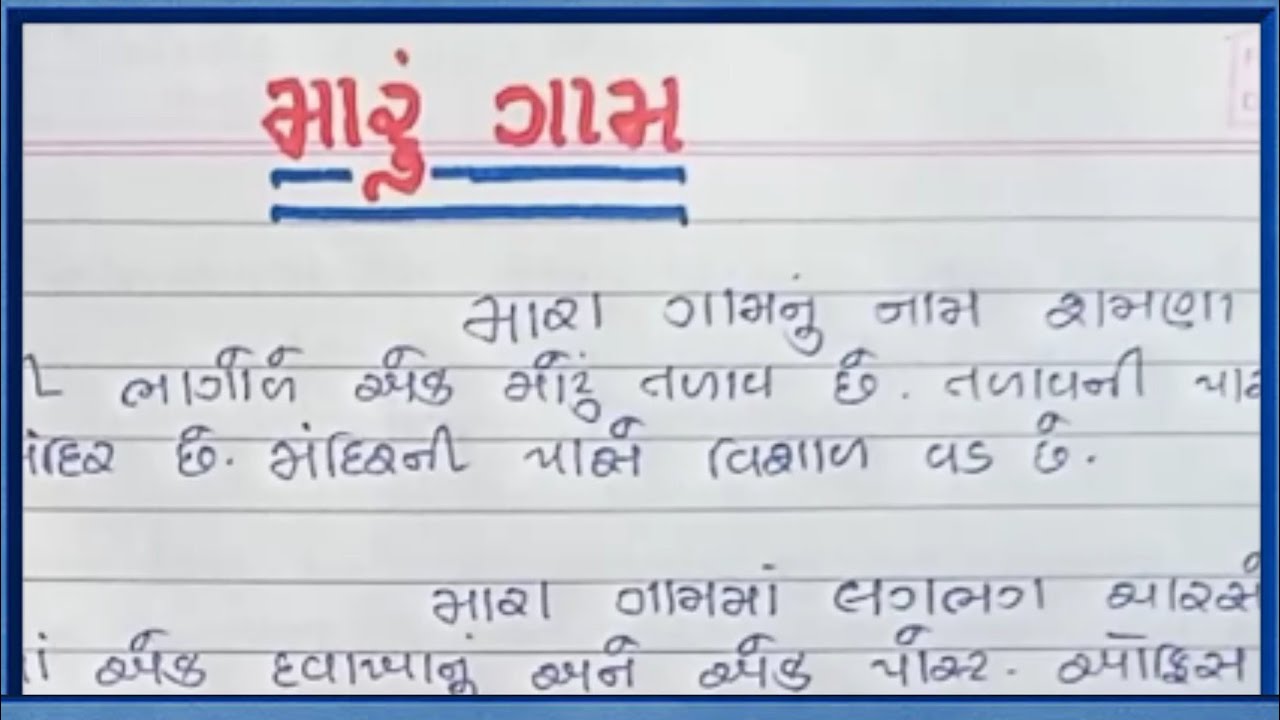 મારું ગામ
મારા ગામનું નામ શમણા
ભાગોળે એક મોટું તળાવ છે. તળાવની
મંદિર છે. મંદિરની પાસે વિશાળ વડ છે.
મારા ગામમાં લગભગ ચારસો
એક દવાખાનું અને એક પોસ્ટ. ઑફિસ